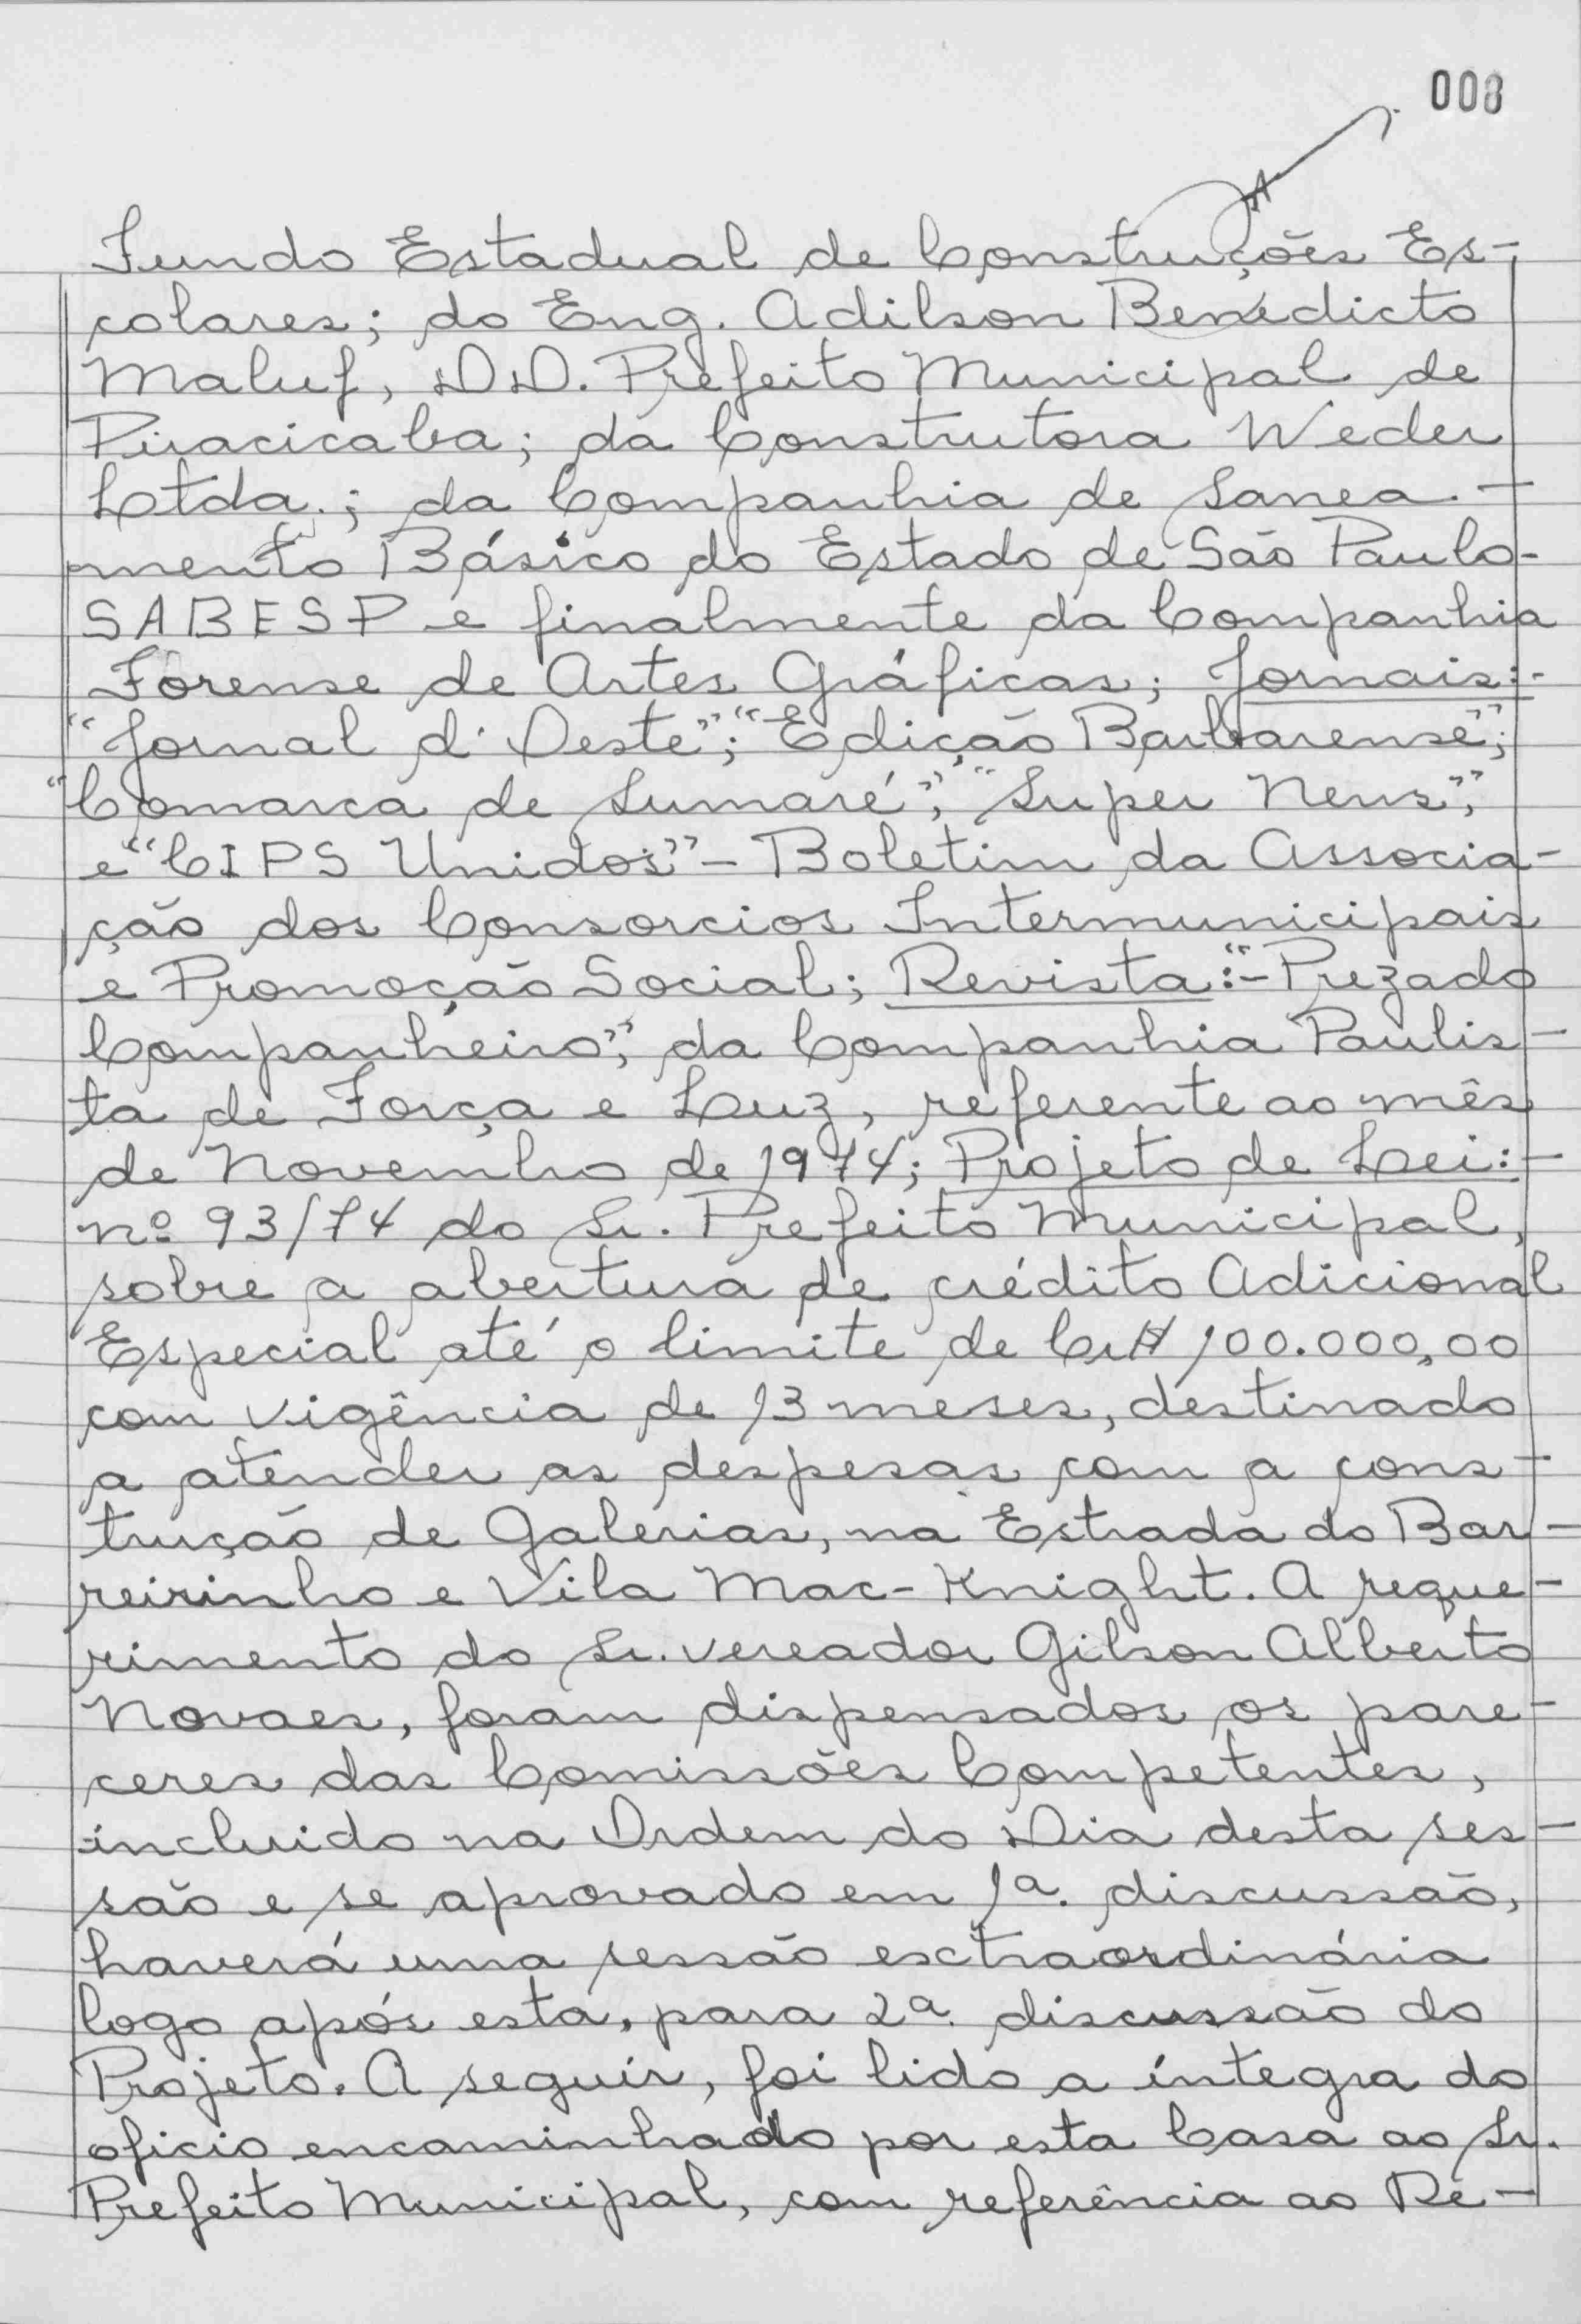 008
Fundo Estadual de Construções Es-
colares; do Eng. Adilson Benedicto
Maluf, DD. Prefeito Municipal de
Piracicaba; da Construtora Weder
Ltda.; da Companhia de Sanea-
mento Básico do Estado de São Paulo-
SABESP e finalmente da Companhia
Forense de Artes Gráficas; Jornais:-
"Jornal d'Oeste"; "Edição Barbarense";
"Comarca de Sumaré"; "Super News";
e "CIPS Unidos" - Boletim da Associa-
ção dos Consorcios Intermunicipais
e Promoção Social; Revista:- "Prezado
Companheiro", da Companhia Paulis-
ta de Força e Luz, referente ao mês
de Novembro de 1974; Projeto de Lei:-
nº 93/74 do Sr. Prefeito Municipal,
sobre a abertura de crédito Adicional
Especial até o limite de Cr$ 100.000,00
com vigência de 13 meses, destinado
a atender as despesas com a cons-
trução de Galerias, na Estrada do Bar-
reirinho e Vila Mac-Knight. A reque-
rimento do Sr. vereador Gilson Alberto
Novaes, foram dispensados os pare-
ceres das Comissões Competentes,
incluido na Ordem do Dia desta ses-
são e se aprovado em 1ª. discussão,
haverá uma sessão extraordinária
logo após esta, para 2ª. discussão do
Projeto. A seguir, foi lido a íntegra do
oficio encaminhado por esta Casa ao Sr.
Prefeito Municipal, com referência ao Re-